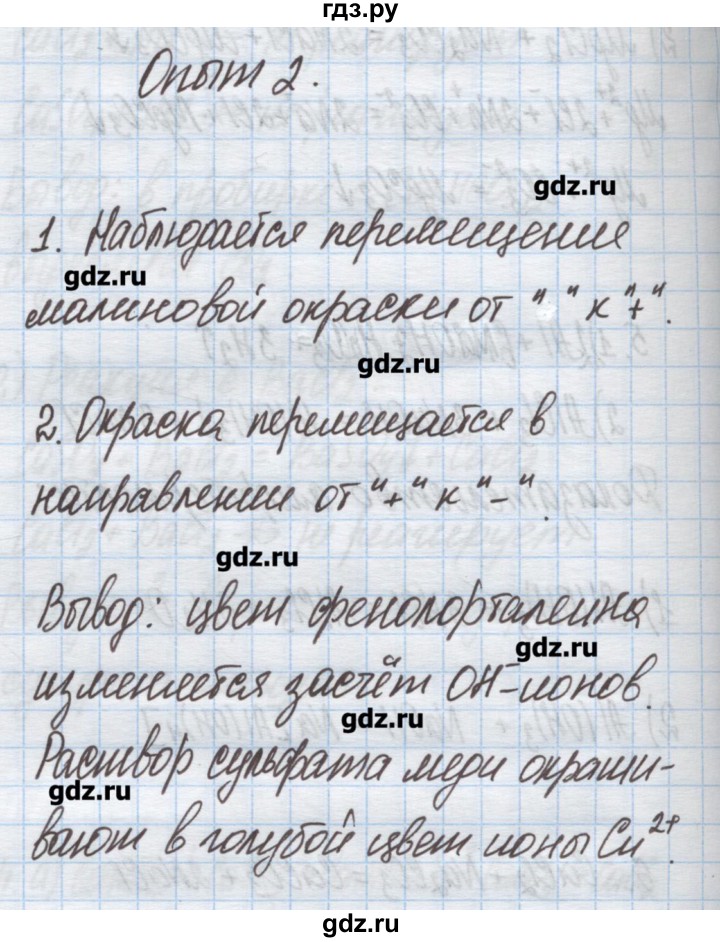 гдз.ру
Опыт 2.
gdz.ru
1. Наблюдается перемещение
gdz.ru
малиновой окраски от " " к "+".
gdz.ru
2. Окраска перемещается в
направлении от "+" к "-".
gdz.ru
Вывод: цвет фенолорталеина
gdz.ru
изменяется засчёт OH⁻-ионов.
gdz.ru
Раствор сульфата меди окраши-
gdz.ru
вают в голубой цвет ионы Cu²⁺.
gdz.ru